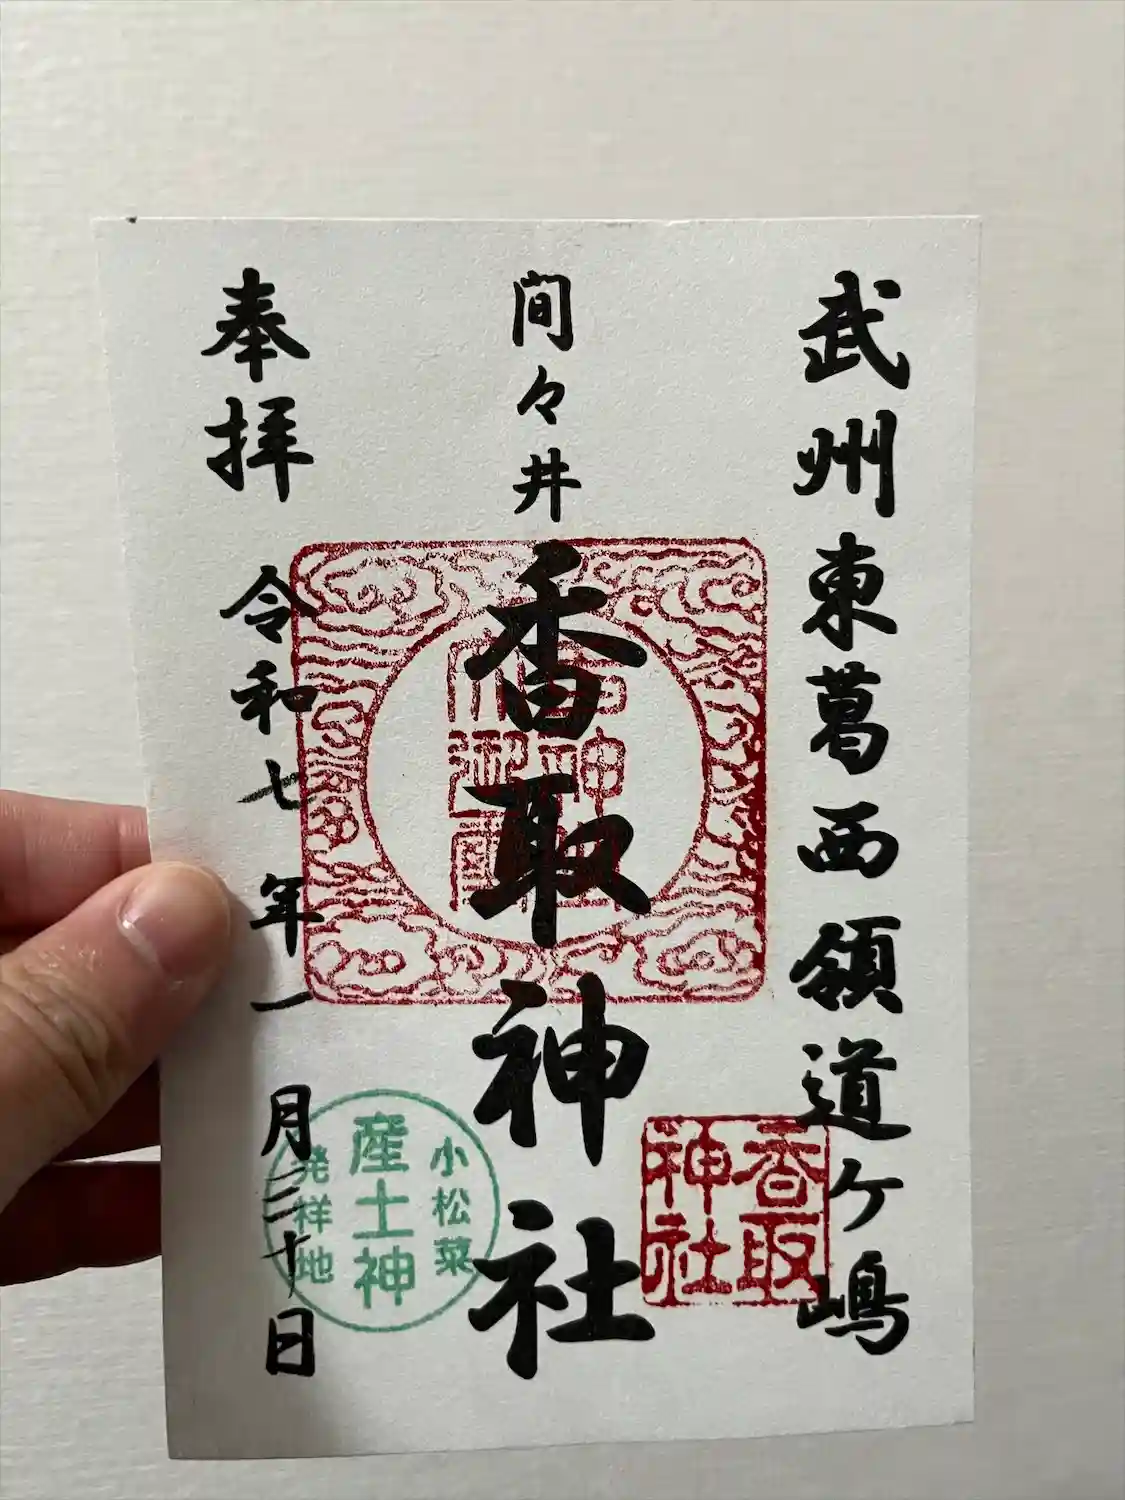 武州東葛西領道ケ嶋
間々井
香取神社
奉拝
令和七年一月三十日
香取
神社
小松菜
産土神
発祥地